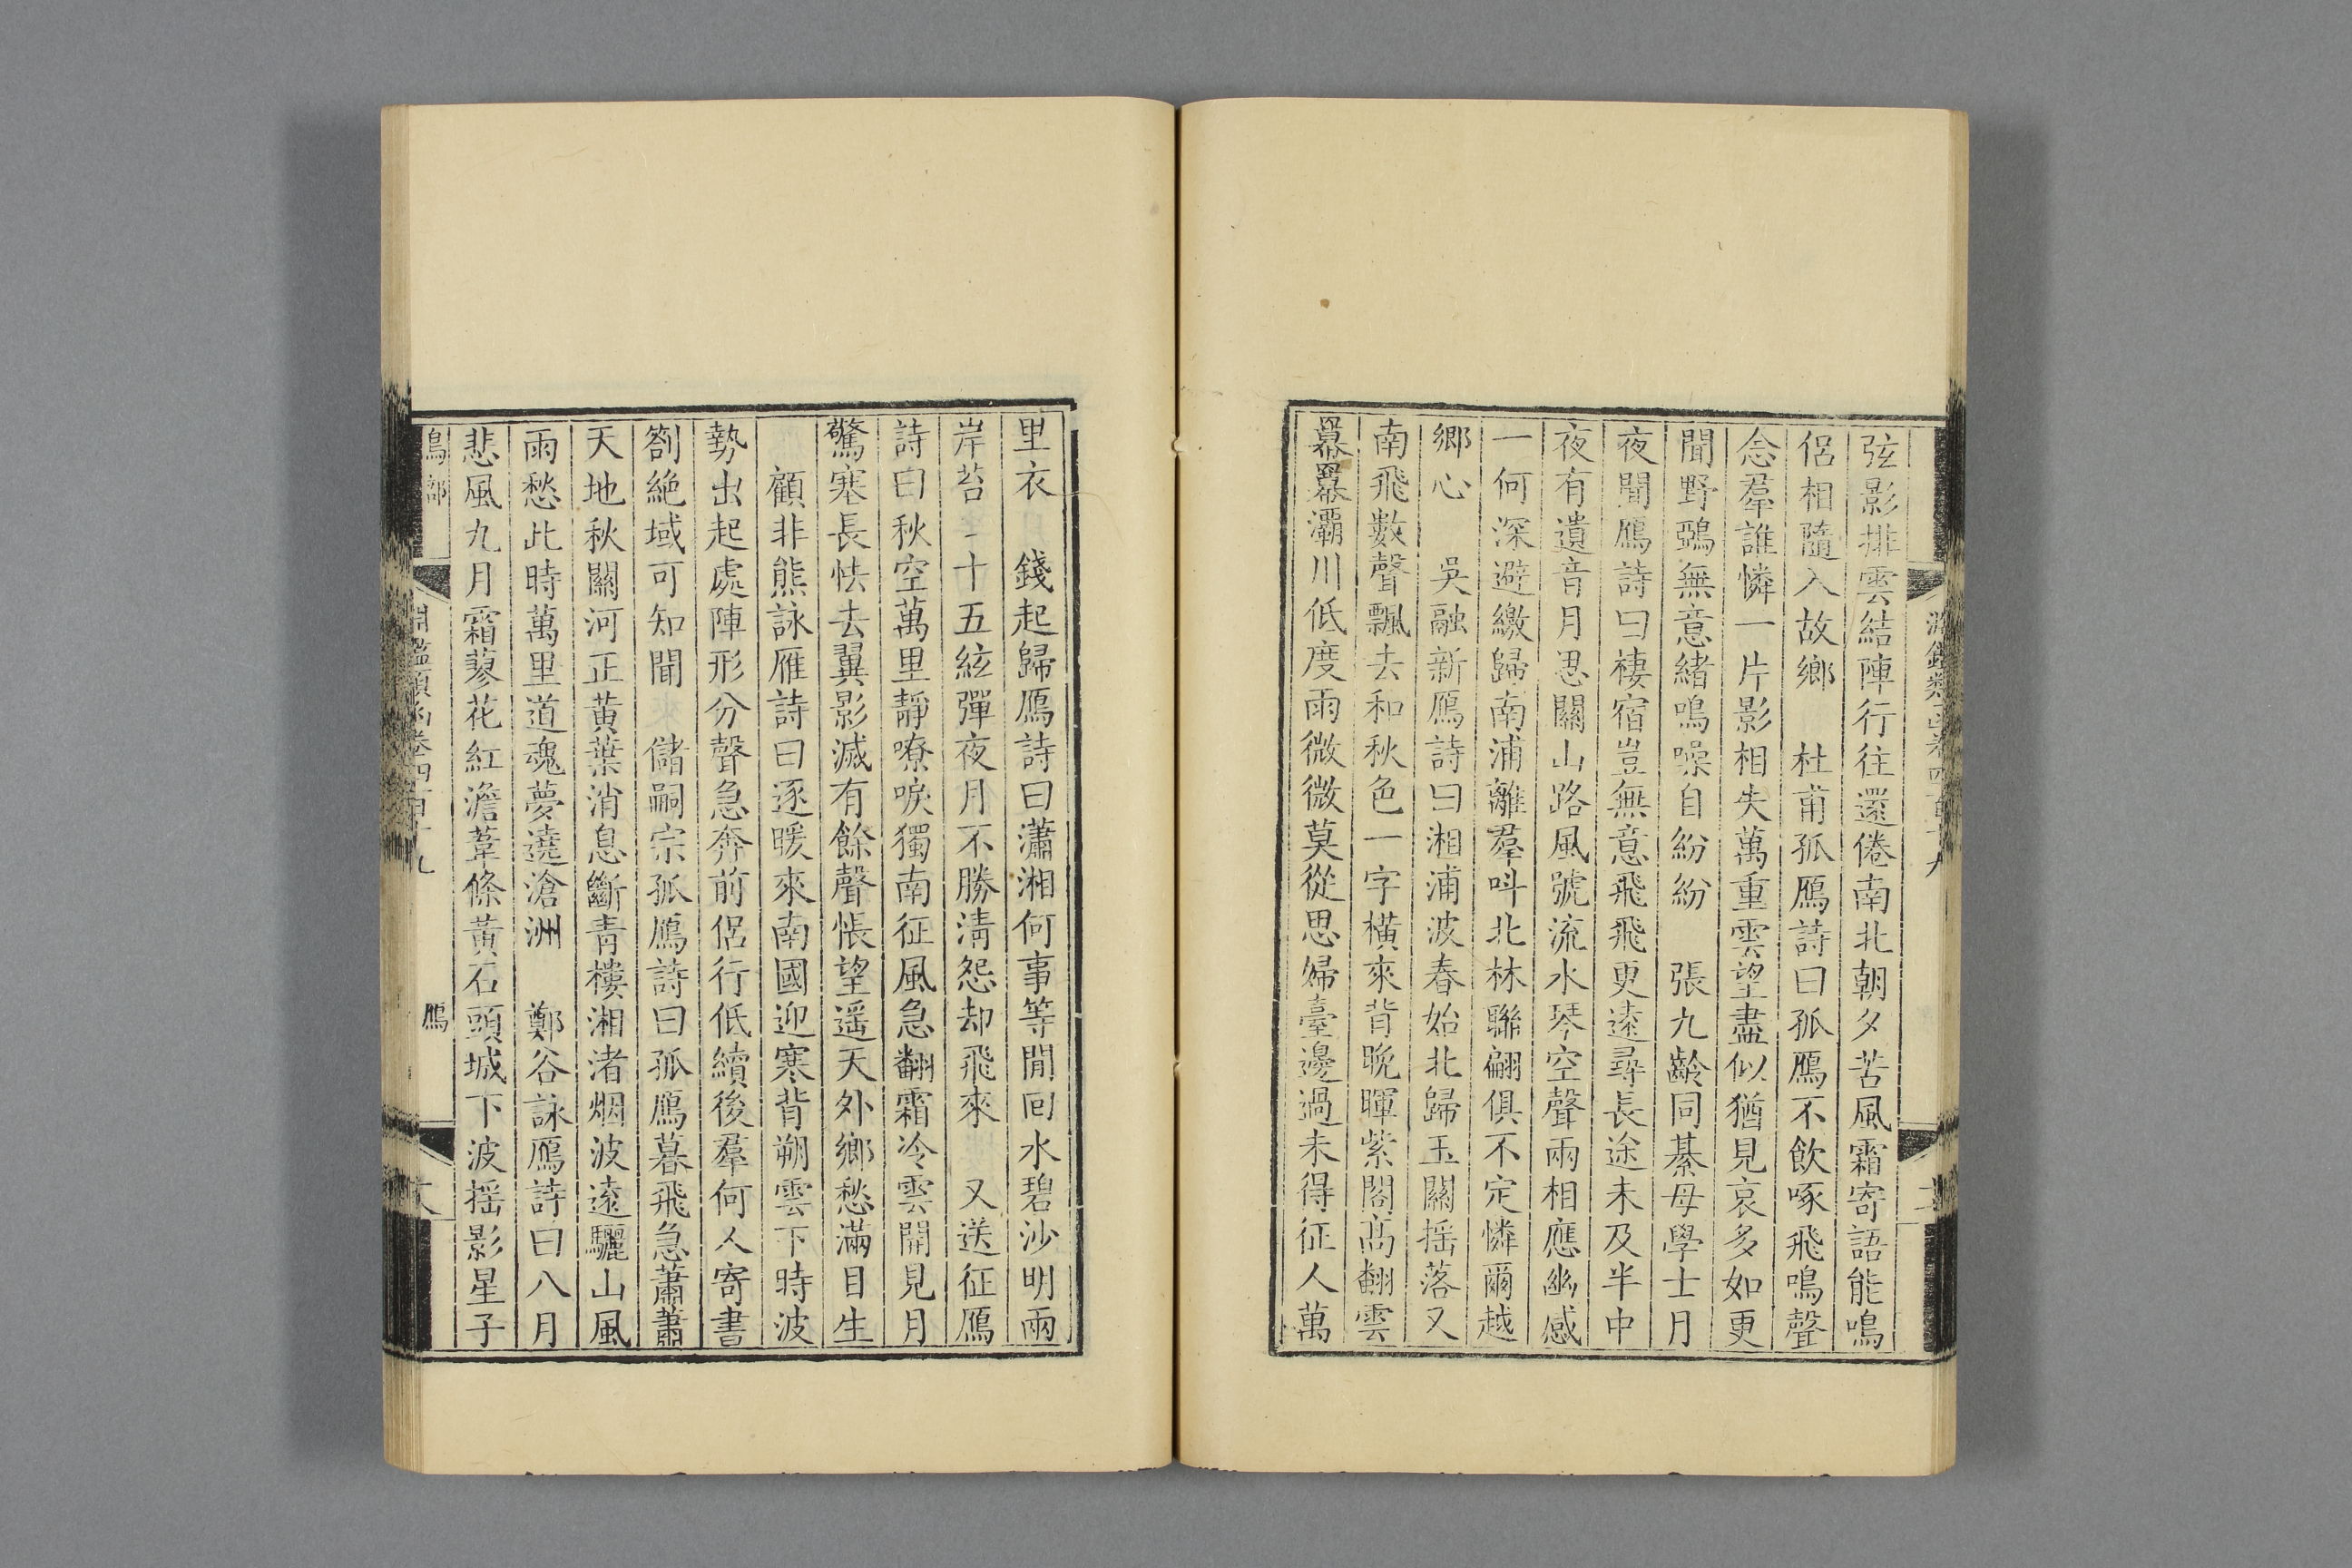 弦影排雲結陣行往還倦南北朝夕苦風霜寄語能鳴
侶相隨入故鄉　杜甫孤鴈詩曰孤鴈不飲啄飛鳴聲
念羣誰憐一片影相失萬重雲望盡似猶見哀多如更
聞野鵶無意緒鳴噪自紛紛　張九齡同綦毋學士月
夜聞鴈詩曰棲宿豈無意飛飛更遠尋長途未及半中
夜有遺音月思關山路風號流水琴空聲兩相應幽感
一何深避繳歸南浦離羣呌北林聯翩俱不定憐爾越
鄉心　吳融新鴈詩曰湘浦波春始北歸玉關摇落又
南飛數聲飄去和秋色一字橫來背晚暉紫閣高翻雲
羃羃灞川低度雨微微莫從思婦臺邊過未得征人萬
里衣　錢起歸鴈詩曰瀟湘何事等閒回水碧沙明兩
岸苔二十五絃彈夜月不勝清怨却飛來　又送征鴈
詩曰秋空萬里靜嘹唳獨南征風急翻霜冷雲開見月
驚塞長怯去翼影滅有餘聲悵望遥天外鄉愁滿目生
顧非熊詠雁詩曰逐暖來南國迎寒背朔雲下時波
勢出起處陣形分聲急奔前侶行低續後羣何人寄書
劄絶域可知聞　儲嗣宗孤鴈詩曰孤鴈暮飛急蕭蕭
天地秋關河正黃葉消息斷青樓湘渚烟波遠驪山風
雨愁此時萬里道魂夢遶滄洲　鄭谷詠鴈詩曰八月
悲風九月霜蓼花紅澹葦條黃石頭城下波摇影星子
鳥部　淵鑑類函卷四百十九　鴈